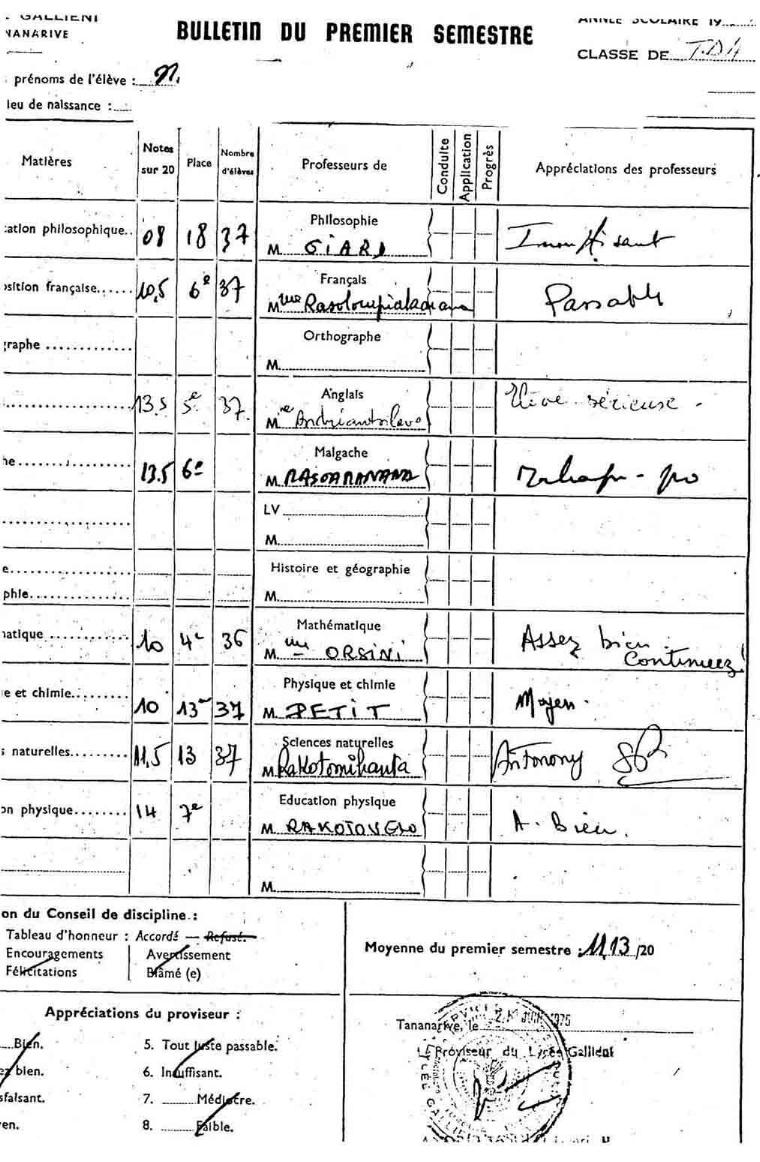 GALLIENI
NANARIVE
BULLETIN DU PREMIER SEMESTRE
ANNÉE SCOLAIRE 19
CLASSE DE
prénoms de l'élève :
ieu de naissance :
Matières Notes sur 20 Place Nombre d'élèves Professeurs de Conduite Application Progrès Appréciations des professeurs
Philosophie
cation philosophique.. 08 18 37 Insuffisant
M. GIARD
Français
osition française...... 10,5 6e 37 Passable
Mme
Orthographe
graphe
M.
Anglais
13.5 5e 37 Elève sérieuse -
Malgache
he 13.5 6e
M.
LV
M.
Histoire et géographie
e
phie
M.
Mathématique
natique 10 4e 36 Assez bien
Continuez!
Mme ORSINI
Physique et chimie
e et chimie 10 13e 37 Moyen.
M. PETIT
Sciences naturelles
s naturelles 11,5 13 37
M. Rakotomihanta
Education physique
on physique 14 7e A. Bien.
M. RAKOTOVELO
M.
on du Conseil de discipline :
Tableau d'honneur : Accordé — Refusé.
Encouragements Avertissement
Félicitations Blâmé (e)
Moyenne du premier semestre : 11,13 /20
Appréciations du proviseur :
Bien. 5. Tout juste passable.
ez bien. 6. Insuffisant.
sfaisant. 7. Médiocre.
en. 8. Faible.
Tananarive, le JUIN 1975
Le Proviseur du Lycée Galliéni